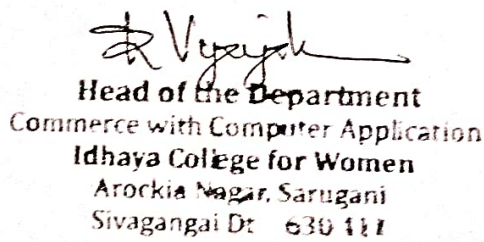 Head of the Department
Commerce with Computer Application
Idhaya College for Women
Arockia Nagar, Sarugani
Sivagangai Dt 630